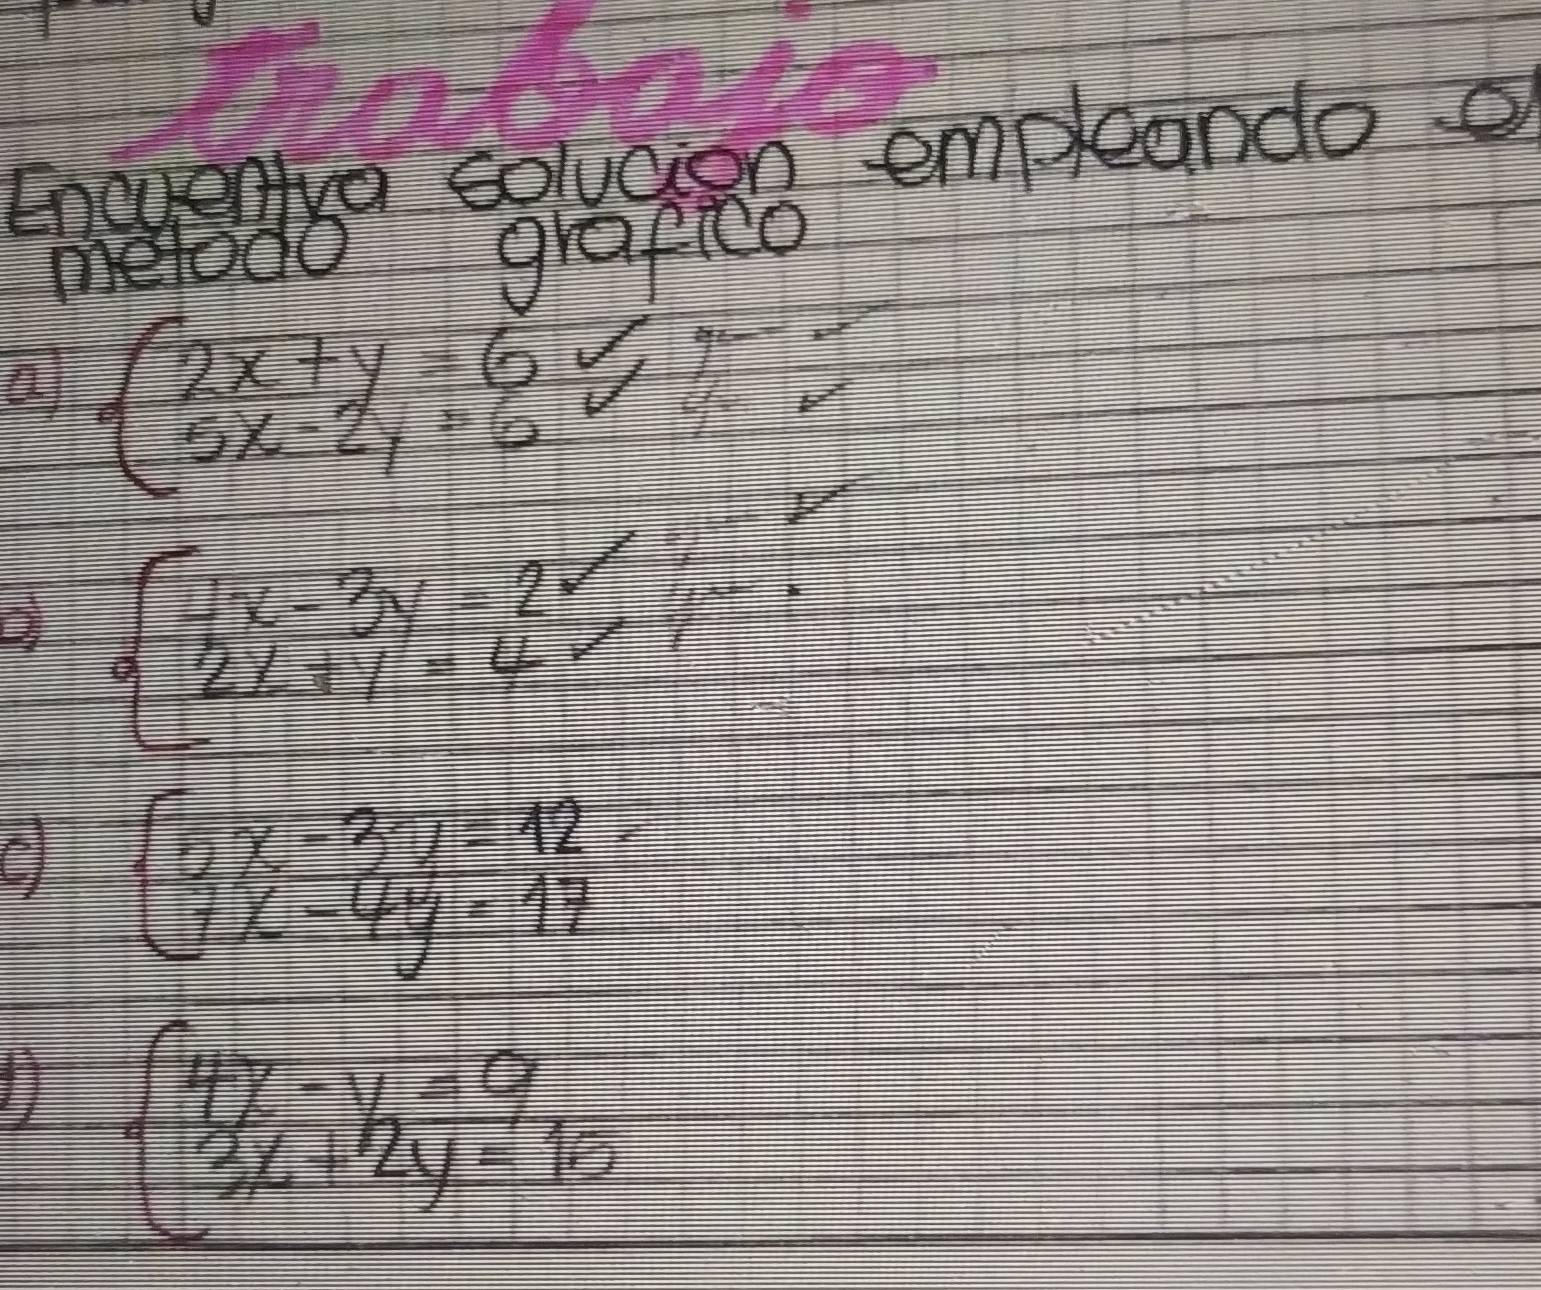 Trabajo
Encuentra solucion empleando el
metodo grafico
a) 2x + y = 6 ✓ y= ✓
5x - 2y = 6 ✓ y= ✓
b) 4x - 3y = 2 ✓ y= ✓
2x + y = 4 ✓ y=
c) 5x - 3y = 12
7x - 4y = 17
d) 4x - y = 9
3x + 2y = 15